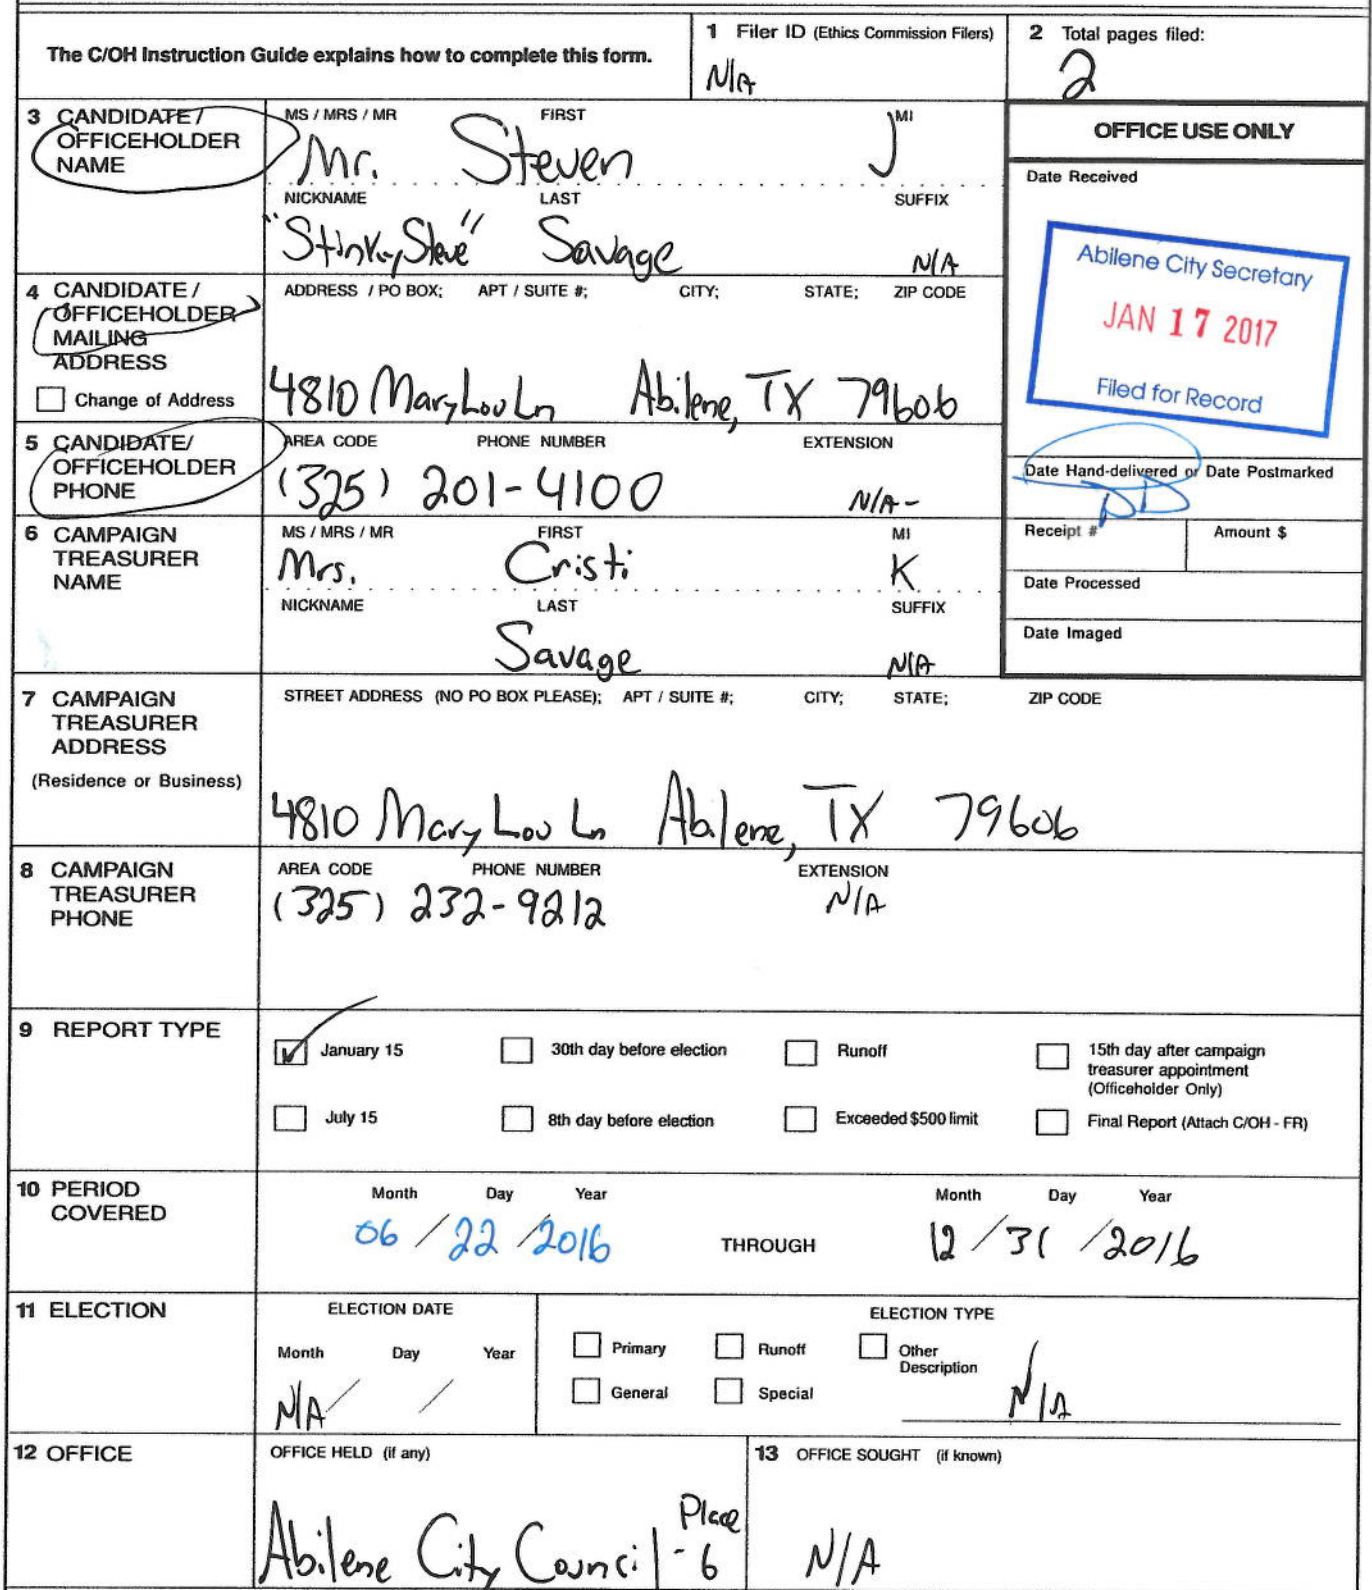 The C/OH Instruction Guide explains how to complete this form.
1 Filer ID (Ethics Commission Filers)
N/A
2 Total pages filed:
2
3 CANDIDATE / OFFICEHOLDER NAME
MS / MRS / MR FIRST MI
Mr. Steven J
NICKNAME LAST SUFFIX
"Stinky Steve" Savage N/A
OFFICE USE ONLY
Date Received
Abilene City Secretary
JAN 17 2017
Filed for Record
4 CANDIDATE / OFFICEHOLDER MAILING ADDRESS
Change of Address
ADDRESS / PO BOX; APT / SUITE #; CITY; STATE; ZIP CODE
4810 Mary Lou Ln Abilene, TX 79606
5 CANDIDATE/ OFFICEHOLDER PHONE
AREA CODE PHONE NUMBER EXTENSION
(325) 201-4100 N/A-
Date Hand-delivered or Date Postmarked
DD
Receipt # Amount $
Date Processed
Date Imaged
6 CAMPAIGN TREASURER NAME
MS / MRS / MR FIRST MI
Mrs. Cristi K
NICKNAME LAST SUFFIX
Savage N/A
7 CAMPAIGN TREASURER ADDRESS
(Residence or Business)
STREET ADDRESS (NO PO BOX PLEASE); APT / SUITE #; CITY; STATE; ZIP CODE
4810 Mary Lou Ln Abilene, TX 79606
8 CAMPAIGN TREASURER PHONE
AREA CODE PHONE NUMBER EXTENSION
(325) 232-9212 N/A
9 REPORT TYPE
January 15 30th day before election Runoff 15th day after campaign treasurer appointment (Officeholder Only)
July 15 8th day before election Exceeded $500 limit Final Report (Attach C/OH - FR)
10 PERIOD COVERED
Month Day Year Month Day Year
06 / 22 / 2016 THROUGH 12 / 31 / 2016
11 ELECTION
ELECTION DATE
Month Day Year
N/A / /
ELECTION TYPE
Primary Runoff Other Description
General Special N/A
12 OFFICE
OFFICE HELD (if any)
Abilene City Council - Place 6
13 OFFICE SOUGHT (if known)
N/A